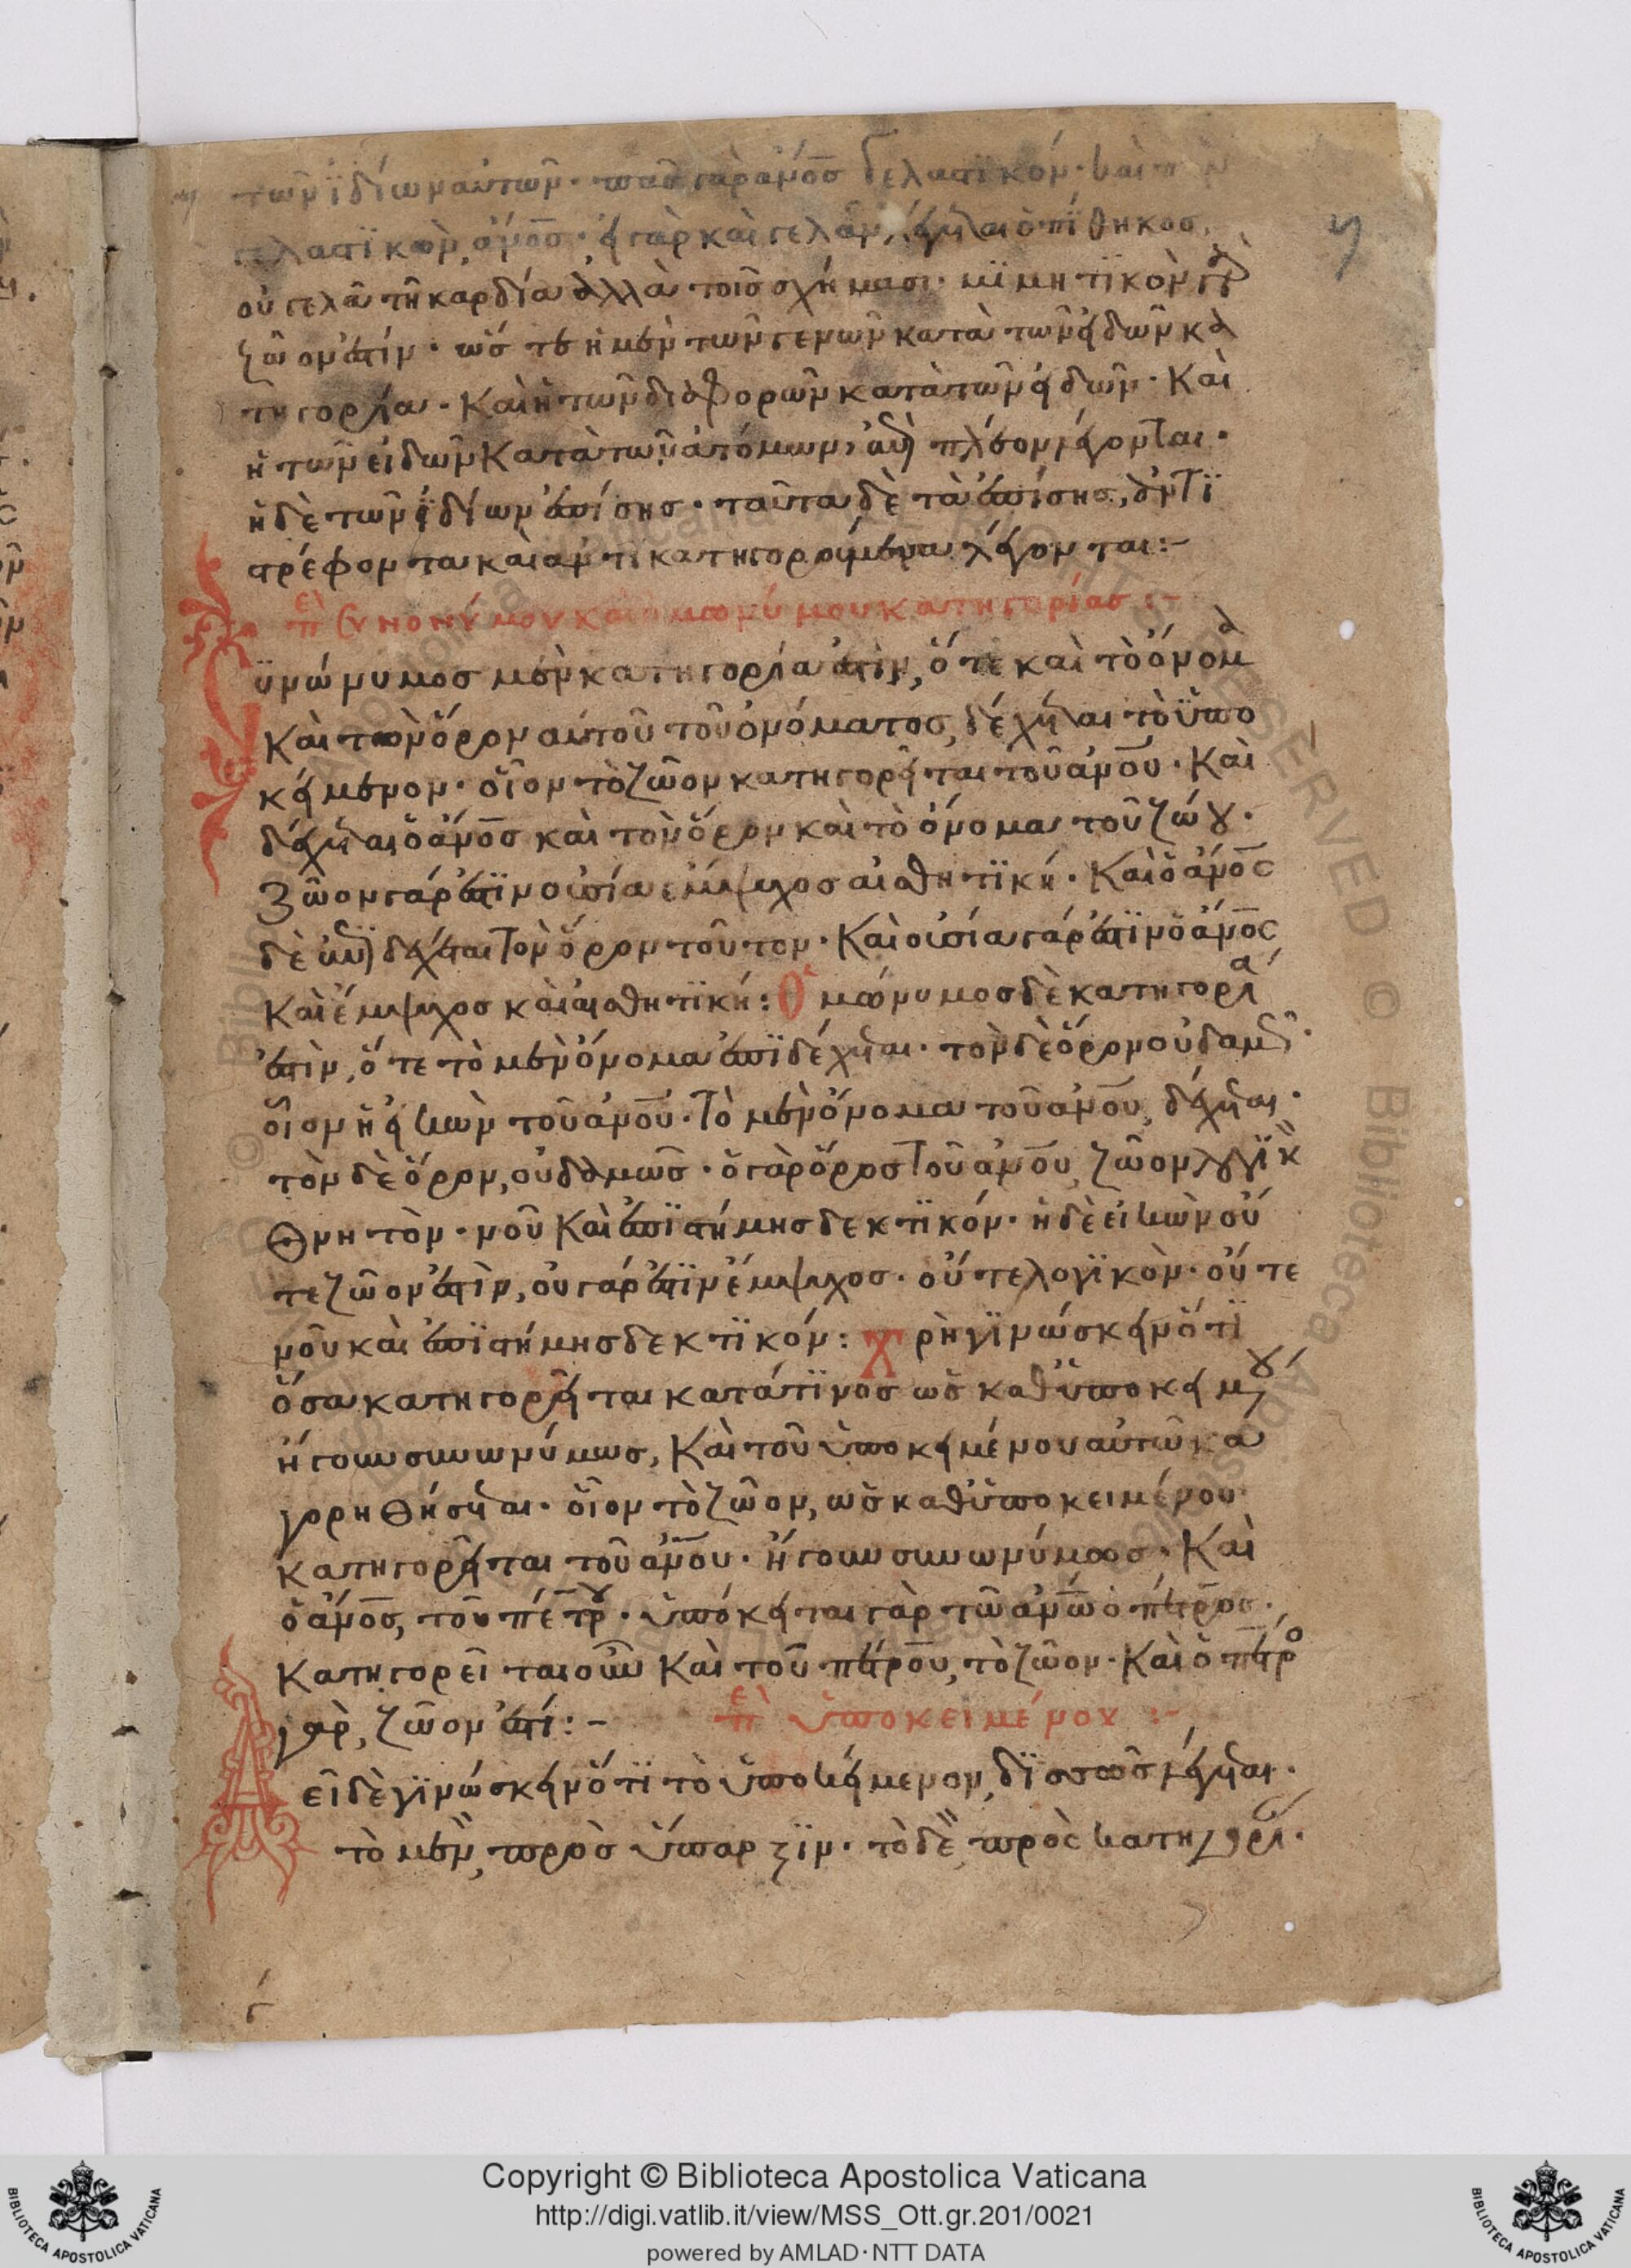 τῶν ϊδίων αυτῶν· πᾶς γὰρ ἄνο̅σ γελαστικόν· καὶ πᾶν
γελαστϊκὸν, ἄνο̅σ· εἰ γὰρ καὶ γελᾶν λέγεται ὁ πΐθηκοσ,
οὐ γελᾶ τῆ καρδία ἀλλὰ τοῖσ σχήμασι· μϊμητϊκὸν γὰρ
ζῶον ἐστίν· ὥσ τε ἡ μὲν τῶν γενῶν κατὰ τῶν εἰδῶν κα
τηγορία· Καὶ ἡ τῶν διαφορῶν κατὰ τῶν εἰδῶν· Καὶ
ἡ τῶν εἰδῶν Κατὰ τῶν ἀτόμων, ἐπὶ πλέον λέγονται·
ἡ δὲ τῶν ϊδίων ἐπίσησ· ταῦτα δὲ τὰ ἐπίσησ, ἀντϊ
στρέφονται καὶ ἀντικατηγορούμενα λέγονται:-
πε συνονύμου καὶ ομωνύμου κατηγορίασ :-
ϋνώνυμοσ μὲν κατηγορία ἐστὶν, ὅτε καὶ τὸ ὄνομα
Καὶ τὸν ὅρον αὐτοῦ τοῦ ὀνόματοσ, δέχεται τὸ ϋπο
κείμενον· οἷον τὸ ζῶον κατηγορεῖται τοῦ ἀνο̅υ· Καὶ
δέχεται ὁ ἄνο̅σ καὶ τὸν ὅρον καὶ τὸ ὄνομα τοῦ ζώου·
Ζῶον γάρ ἐστϊν οὐσία ἔμψυχοσ αἰσθητϊκή· Καὶ ὁ ἄνο̅ς
δὲ ἐπιδέχεται τὸν ὅρον τοῦτον· Καὶ οὐσία γάρ ἐστϊν ὁ ἄνο̅ς
Καὶ ἔμψυχοσ καὶ αἰσθητϊκή: Ὁμώνυμοσ δὲ κατηγορία
ἐστὶν, ὅτε τὸ μὲν ὄνομα ἐπϊδέχεται· τὸν δὲ ὅρον οὐδαμῶς·
οἷον ἡ εἰκὼν τοῦ ἀνο̅υ· Τὸ μὲν ὄνομα τοῦ ἀνο̅υ, δέχεται·
τὸν δὲ ὅρον, οὐδαμῶσ· ὁ γὰρ ὅροσ τοῦ ἀνο̅υ, ζῶον λογϊκ
θνητὸν· νοῦ Καὶ ἐπϊστήμησ δεκτϊκόν· ἡ δὲ εἰκὼν οὔ
τε ζῶον ἐστὶν, οὐ γάρ ἐστϊν ἔμψυχοσ· οὔτε λογϊκὸν· οὔτε
νοῦ καὶ ἐπϊστήμησ δεκτϊκόν: χρὴ γϊνώσκειν ὅτϊ
ὅσα κατηγορεῖται κατά τϊνοσ ὡσ καθ ὑποκειμένου
ἤγουν συνωνύμωσ, Καὶ τοῦ ὑποκειμένου αὐτῶ κα
γορηθήσεται· οἷον τὸ ζῶον, ὡσ καθ ὑποκειμένου
κατηγορεῖται τοῦ ἀνο̅υ· ἤγουν συνωνύμωσ· Καὶ
ὁ ἄνο̅σ, τοῦ πέτρου· ὑπόκειται γὰρ τῶ ἀνω̅ ὁ πέτροσ·
Κατηγορεῖται οὖν Καὶ τοῦ πέτρου, τὸ ζῶον· Καὶ ὁ πέτρο
γὰρ, ζῶον ἐστί:- πε ὑποκειμένου :-
εῖ δὲ γϊνώσκειν ὅτϊ τὸ ὑποκείμενον, δϊσσῶσ λέγεται·
τὸ μὲν, πρὸσ ὕπαρξϊν· τὸ δὲ, πρὸς κατηγορί·
Copyright © Biblioteca Apostolica Vaticana
http://digi.vatlib.it/view/MSS_Ott.gr.201/0021
powered by AMLAD·NTT DATA
BIBLIOTECA APOSTOLICA VATICANA
BIBLIOTECA APOSTOLICA VATICANA